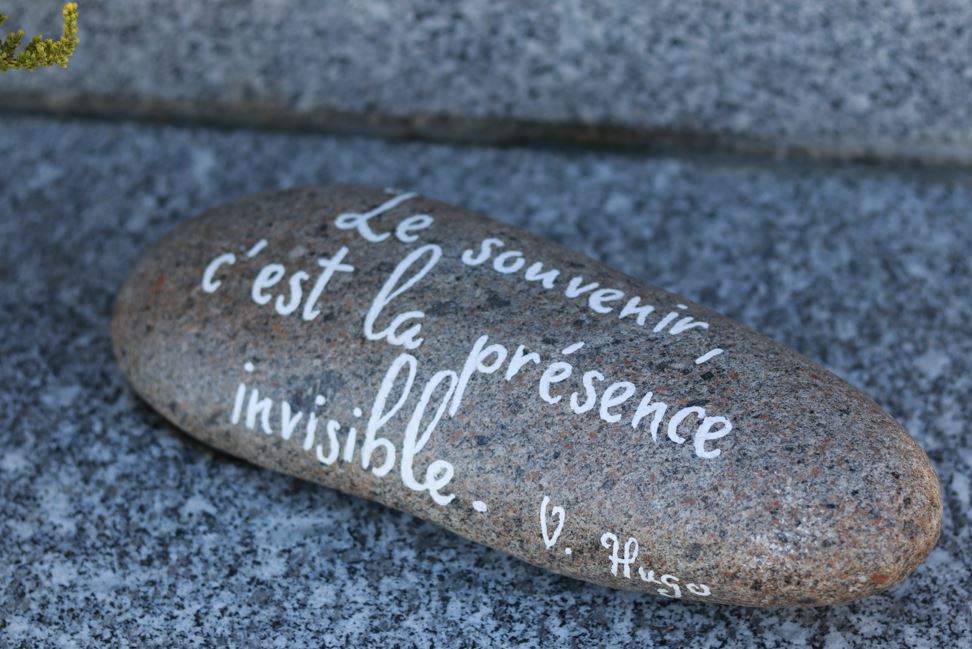 Le souvenir,
c'est la présence
invisible.
V. Hugo